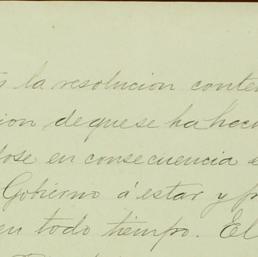 la resolucion conte
ion de que se ha hec
dose en consecuencia
Gobierno á estar y p
en todo tiempo. El